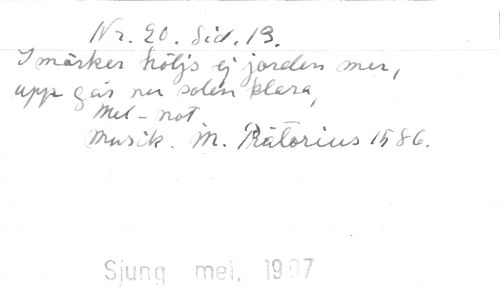 Nr. 20. Sid. 13.
I mörker höljs ej jorden mer,
upp går nu solen klara,
Mel-not
Musik. M. Prätorius 1586.
Sjung mei. 1907